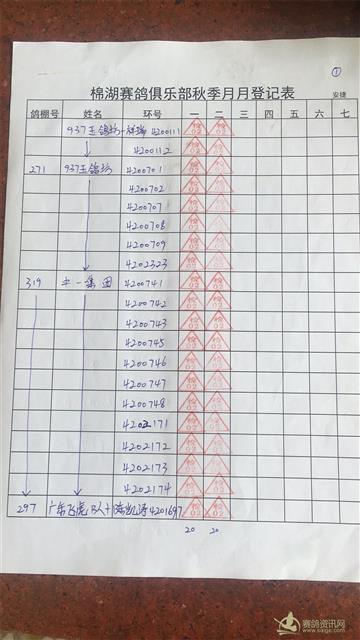 ①
棉湖赛鸽俱乐部秋季月月登记表
安捷
鸽棚号 姓名 环号 一 二 三 四 五 六 七
937王鸽坊-祥瑞 4200111
4200112
271 937王鸽坊 4200701
4200702
4200707
4200708
4200709
4202323
319 中一集团 4200741
4200742
4200743
4200745
4200746
4200747
4200748
4202171
4202172
4202173
4202174
297 飞虎 队 + 陈凯涛 4201697
20 20
赛鸽资讯网
www.saige.com